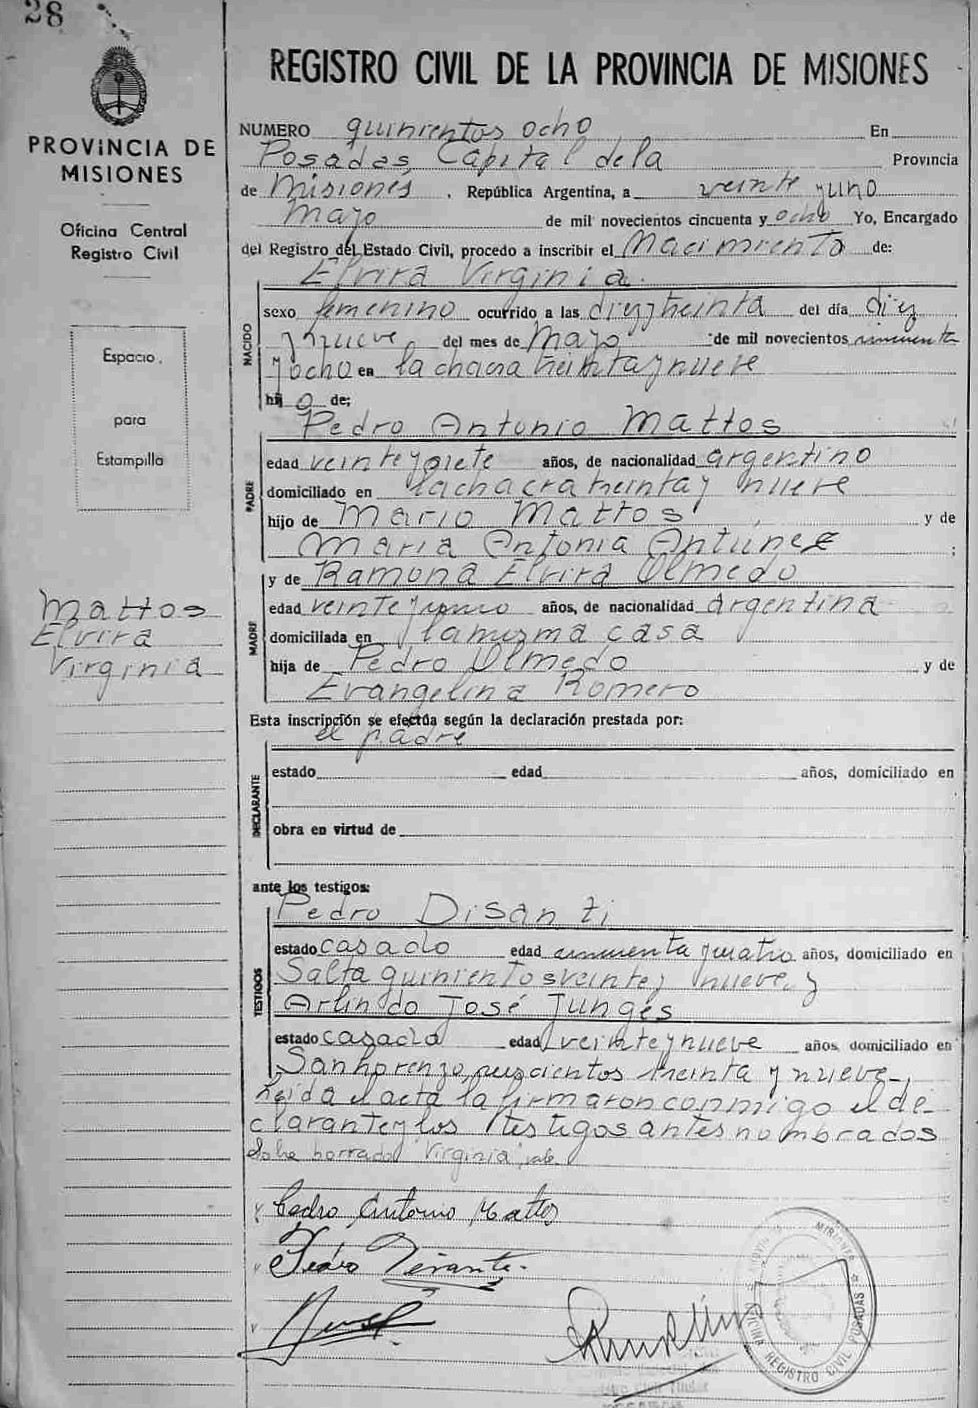 28
PROVINCIA DE
MISIONES
Oficina Central
Registro Civil
Espacio
para
Estampilla
Mattos
Elvira
Virginia
REGISTRO CIVIL DE LA PROVINCIA DE MISIONES
NUMERO quinientos ocho En
Posadas Capital de la Provincia
de Misiones, República Argentina, a veinte y uno
Mayo de mil novecientos cincuenta y ocho Yo, Encargado
del Registro del Estado Civil, procedo a inscribir el Nacimiento de:
Elvira Virginia
NACIDO
sexo femenino ocurrido a las diez y treinta del día diez
y nueve del mes de Mayo de mil novecientos cincuenta
y ocho en la chacra treinta y nueve
hija de:
Pedro Antonio Mattos
PADRE
edad veinte y siete años, de nacionalidad argentino
domiciliado en la chacra treinta y nueve
hijo de Mario Mattos y de
Maria Antonia Antúnez ;
y de Ramona Elvira Olmedo
MADRE
edad veinte y uno años, de nacionalidad argentina
domiciliada en la misma casa
hija de Pedro Olmedo y de
Evangelina Romero
Esta inscripción se efectúa según la declaración prestada por:
el padre
DECLARANTE
estado edad años, domiciliado en
obra en virtud de
ante los testigos:
Pedro Disanti
TESTIGOS
estado casado edad cincuenta y cuatro años, domiciliado en
Salta quinientos veinte y nueve y
Arlindo José Junges
estado casado edad veinte y nueve años, domiciliado en
San Lorenzo, treinta y nueve
Leída el acta la firmaron conmigo el de-
clarante y los testigos antes nombrados
Sobre borrado "Virginia", vale
Pedro Antonio Mattos
Pedro
OFICINA REGISTRO CIVIL POSADAS
MISIONES